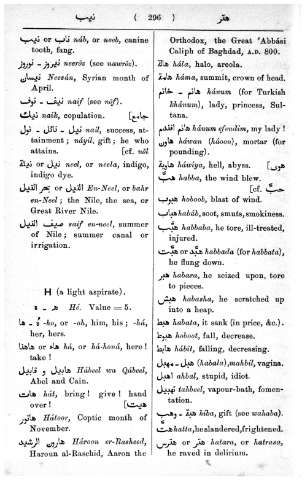 نيب ( 296 ) هتر
ناب or نيب náb, or neeb, canine
tooth, fang.
نيروز - نوروز neeróz (see nawróz).
نيسان Neesán, Syrian month of
April.
نيف - نوف naif (see nóf).
نيك naik, copulation. [جامع
نيل - نائل - نول nail, success, at-
tainment; náyil, gift; he who
attains. [cf. nól
نيل or نيلة neel, or neela, indigo,
indigo dye.
النيل or بحر النيل En-Neel, or bahr
en-Neel; the Nile, the sea, or
Great River Nile.
صيف النيل saif en-neel, summer
of Nile; summer canal or
irrigation.
H (a light aspirate).
ه - ه Hé. Value = 5.
ه - ها -ho, or -oh, him, his; -há,
her, hers.
هاء or هاهنا há, or há-honá, here!
take!
هابيل و قابيل Hábeel wa Qábeel,
Abel and Cain.
هات hát, bring! give! hand
over! [هيت
هاتور Hátoor, Coptic month of
November.
هارون الرشيد Haroun er-Rasheed,
Haroun al-Raschid, Aaron the
Orthodox, the Great 'Abbási
Caliph of Baghdad, A.D. 800.
هالة hála, halo, areola.
هامة háma, summit, crown of head.
هانم - خانم hánum (for Turkish
khánum), lady, princess, Sul-
tana.
هانم افندم hánum efendim, my lady!
هاون háwan (háoon), mortar (for
pounding).
هاوية háwiya, hell, abyss. [هوى
هبّ habba, the wind blew.
[cf. حبّ
هبوب hoboob, blast of wind.
هباب habáb, soot, smuts, smokiness.
هبب habbaba, he tore, ill-treated,
injured.
هبد or هبت habbada (for habbata),
he flung down.
هبر habara, he seized upon, tore
to pieces.
هبش habasha, he scratched up
into a heap.
هبط habata, it sank (in price, &c.).
هبوط hoboot, fall, decrease.
هابط hábit, falling, decreasing.
هبل - مهبل (habala), mahbil, vagina.
اهبل ahbal, stupid, idiot.
تهبيل tahbeel, vapour-bath, fomen-
tation.
هبة - وهب hiba, gift (see wahaba).
هتّ hatta, he slandered, frightened.
هتر or هترس hatara, or hatrasa,
he raved in delirium.